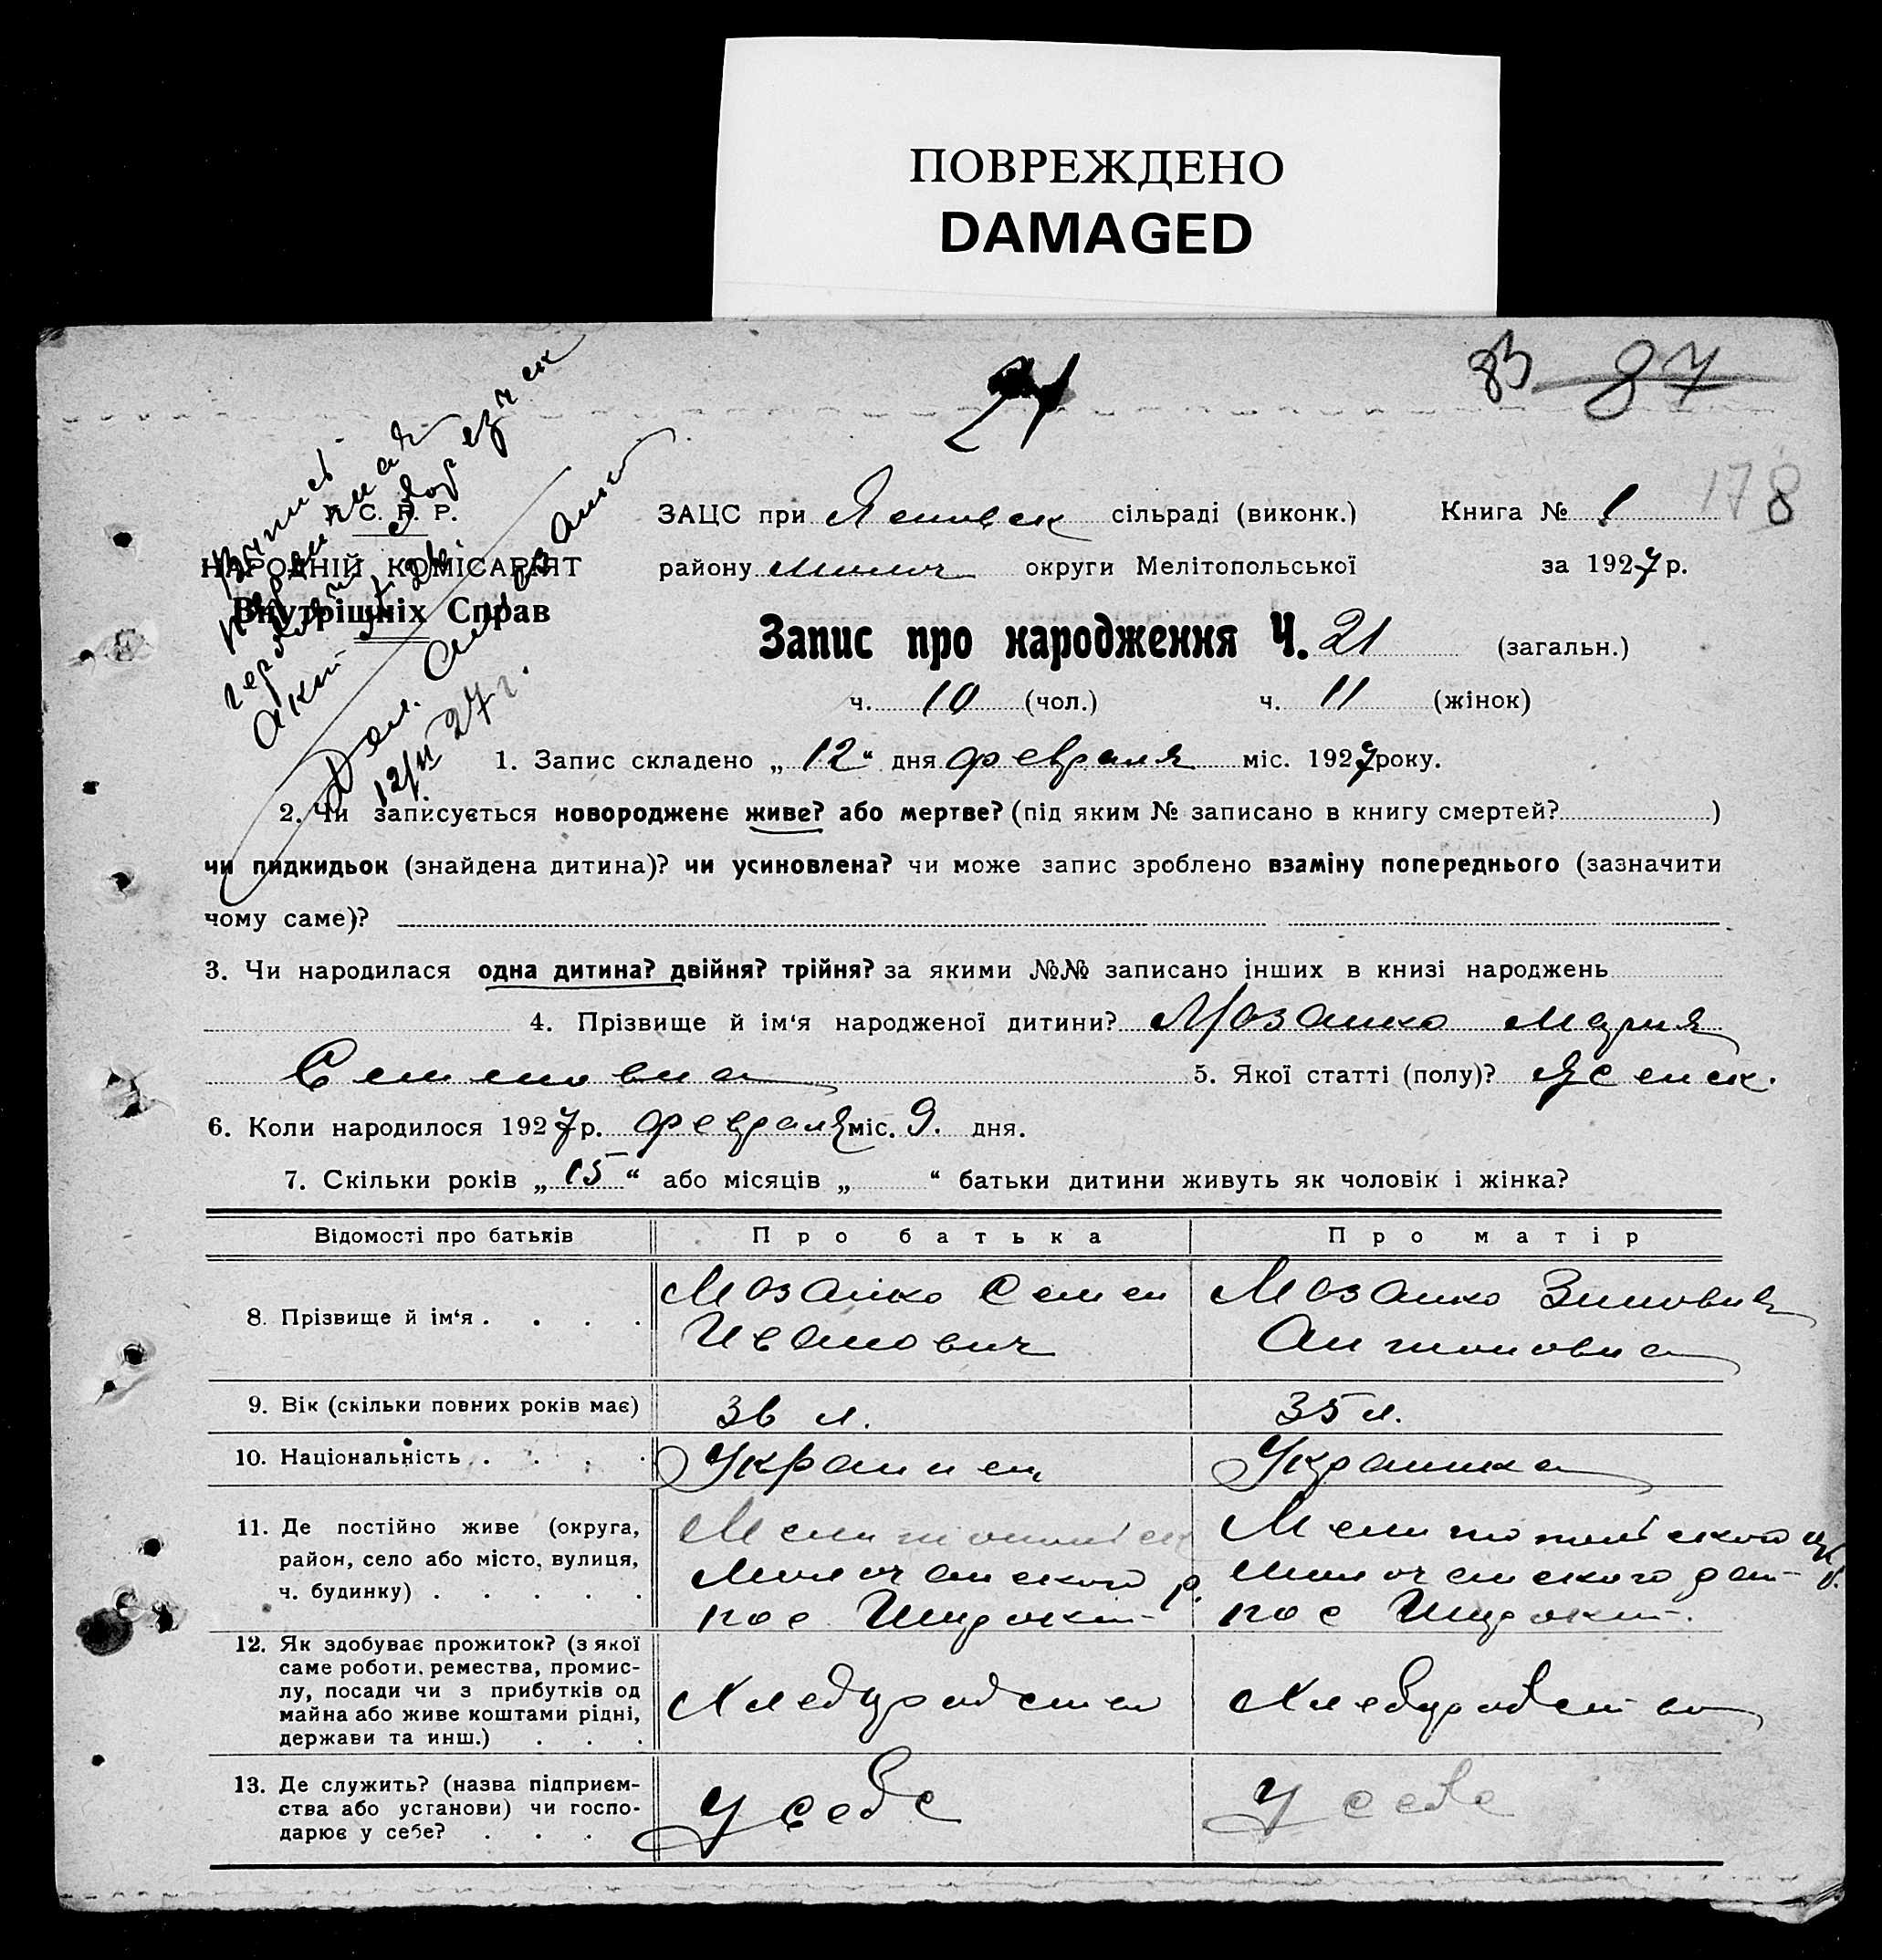 ПОВРЕЖДЕНО
DAMAGED
21
83 87
178
У. С. Р. Р.
НАРОДНІЙ КОМІСАРІЯТ
Внутрішніх Справ
12/II 27 г.
ЗАЦС при сільраді (виконк.) Книга № 1
району округи Мелітопольської за 1927 р.
Запис про народження Ч. 21 (загальн.)
ч. 10 (чол.) ч. 11 (жінок)
1. Запис складено „ 12 “ дня февраля міс. 1927 року.
2. Чи записується новороджене живе? або мертве? (під яким № записано в книгу смертей? )
чи підкидьок (знайдена дитина)? чи усиновлена? чи може запис зроблено взаміну попереднього (зазначити
чому саме)?
3. Чи народилася одна дитина? двійня? трійня? за якими №№ записано інших в книзі народжень
4. Прізвище й ім‘я народженої дитини? Мозайко Мария
Семеновна 5. Якої статті (полу)? Женск.
6. Коли народилося 1927 р. февраля міс. 9. дня.
7. Скільки років „ 15 “ або місяців „ “ батьки дитини живуть як чоловік і жінка?
Відомості про батьків Про батька Про матір
8. Прізвище й ім‘я . . . . Мозайко Семен Мозайко Зиновия
Иванович Антоновна
9. Вік (скільки повних років має) 36 л. 35 л.
10. Національність . . . . Украинец Украинка
11. Де постійно живе (округа,
район, село або місто, вулиця,
ч. будинку) . . . . .
Мелитопольск Мелитопольского
р.
пос пос
12. Як здобуває прожиток? (з якої
саме роботи, ремества, промис-
лу, посади чи з прибутків од
майна або живе коштами рідні,
держави та инш.) . . .
Хлебуробство Хлебуробство
13. Де служить? (назва підприєм-
ства або установи) чи госпо-
дарює у себе? . . .
У себе У себе